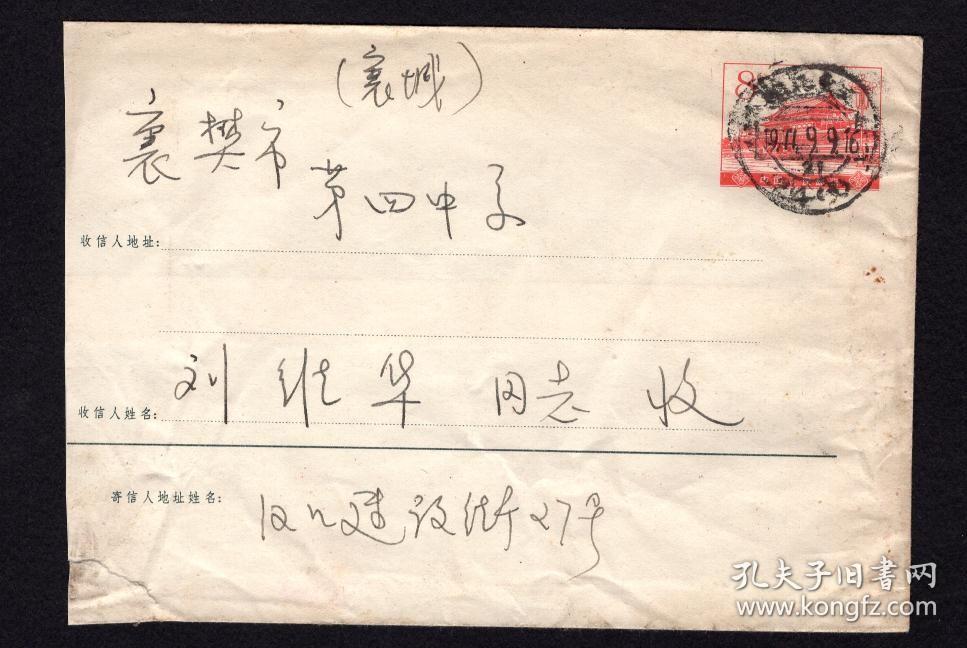 (襄城)
襄樊市
第四中学
收信人地址:
刘维华 同志 收
收信人姓名:
寄信人地址姓名:
汉口建设街27号
8
孔夫子旧書网
www.kongfz.com